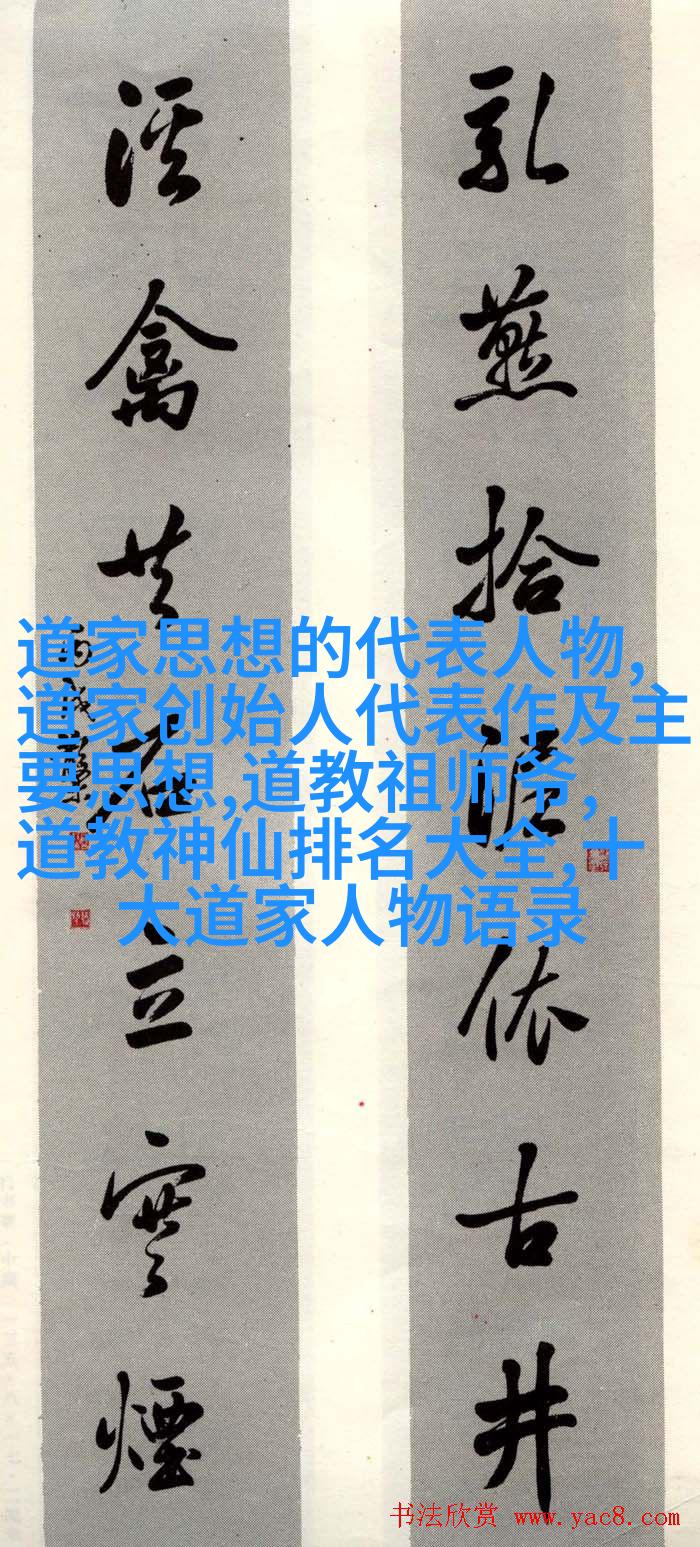 乳燕拾泥依古井
溪禽共立寒煙
道家思想的代表人物,
道家创始人代表作及主
要思想,道教祖师爷,
道教神仙排名大全,十
大道家人物语录
书法欣赏 www.yac8.com